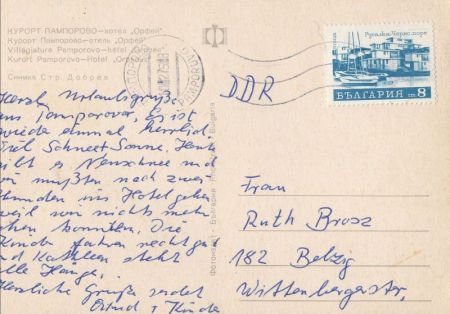 КУРОРТ ПАМПОРОВО — хотел „Орфей“
Курорт Пампорово — отель „Орфей“
Villégiature Pamporovo — hôtel „Orphée“
Kurort Pamporovo — Hotel „Orpheus“
Снимка Стр. Добрев
Herzl. Urlaubsgrüße
aus Pamporovo. Es ist
wieder einmal herrlich.
Viel Schnee + Sonne. Heute
gibt es Neuschnee und
wir mußten nach zwei
Stunden ins Hotel gehen
weil wir nichts mehr
sehen konnten. Die
Kinder fahren recht gut
und Kathleen steht
alle Hänge.
Herzliche Grüße sendet
Ortrud + Kinder
Фотоиздат България
Bulgaria
DDR
Русалка. Черно море
поща
БЪЛГАРИЯ ст. 8
Frau
Ruth Brosz
182 Belzig
Wittenbergerstr.